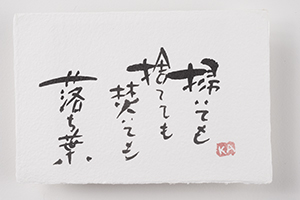 掃いても
捨てても
焚いても
落ち葉。
KA